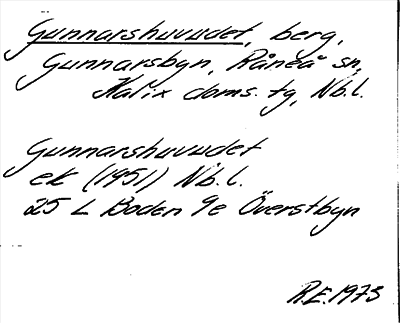 Gunnarshuvudet, berg,
Gunnarsbyn, Råneå sn,
Kalix doms. tg, Nb.l.
Gunnarshuvudet
ek (1951) Nb.l.
25 L Boden 9e Överstbyn
R.E. 1973